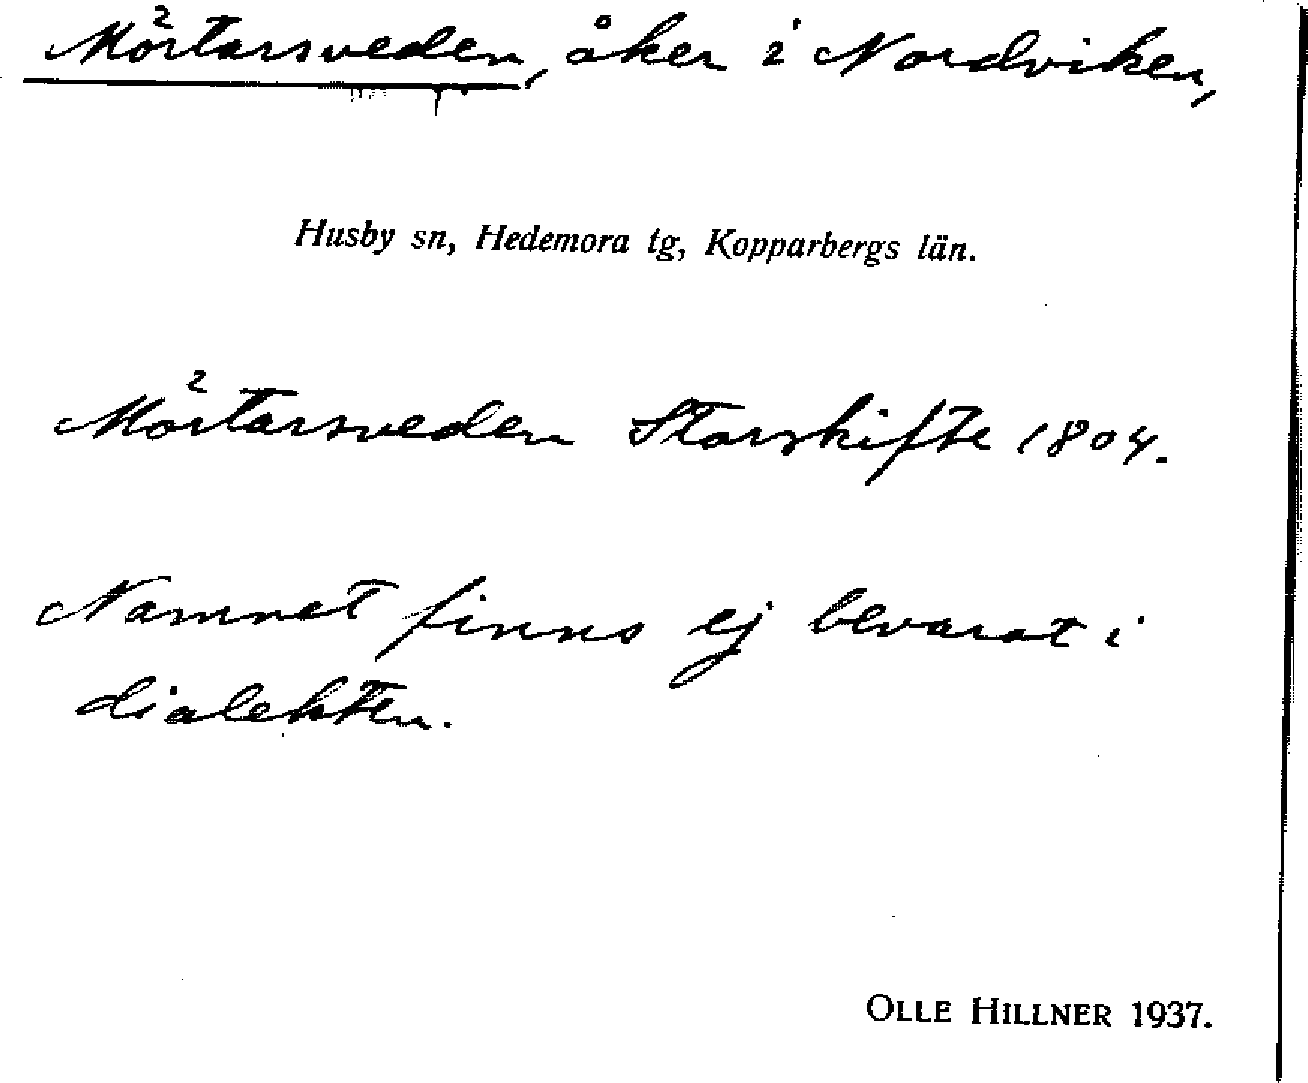 Mörtarsveden, åker i Nordviken,
Husby sn, Hedemora tg, Kopparbergs län.
Mörtarsveden Storskifte 1804.
Namnet finns ej bevarat i
dialekten.
OLLE HILLNER 1937.